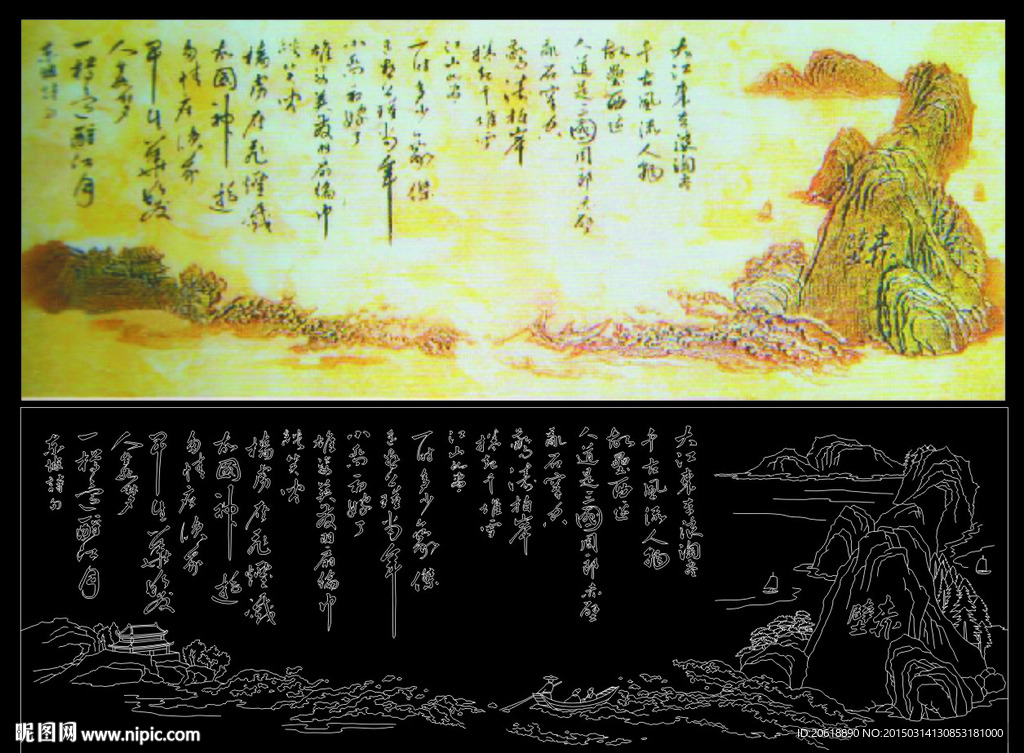 大江東去浪淘盡
千古風流人物
故壘西边
人道是三國周郎赤壁
亂石穿空
驚涛拍岸
捲起千堆雪
江山如畫
一時多少豪傑
遥想公瑾当年
小喬初嫁了
雄姿英發羽扇綸巾
談笑间
檣虜灰飛煙滅
故國神遊
多情应笑我
早生華髮
人生如夢
一樽还酹江月
東坡詩句
赤壁
大江東去浪淘盡
千古風流人物
故壘西边
人道是三國周郎赤壁
亂石穿空
驚涛拍岸
捲起千堆雪
江山如畫
一時多少豪傑
遥想公瑾当年
小喬初嫁了
雄姿英發羽扇綸巾
談笑间
檣虜灰飛煙滅
故國神遊
多情应笑我
早生華髮
人生如夢
一樽还酹江月
東坡詩句
赤壁
昵图网 www.nipic.com
ID:20618890 NO:20150314130853181000